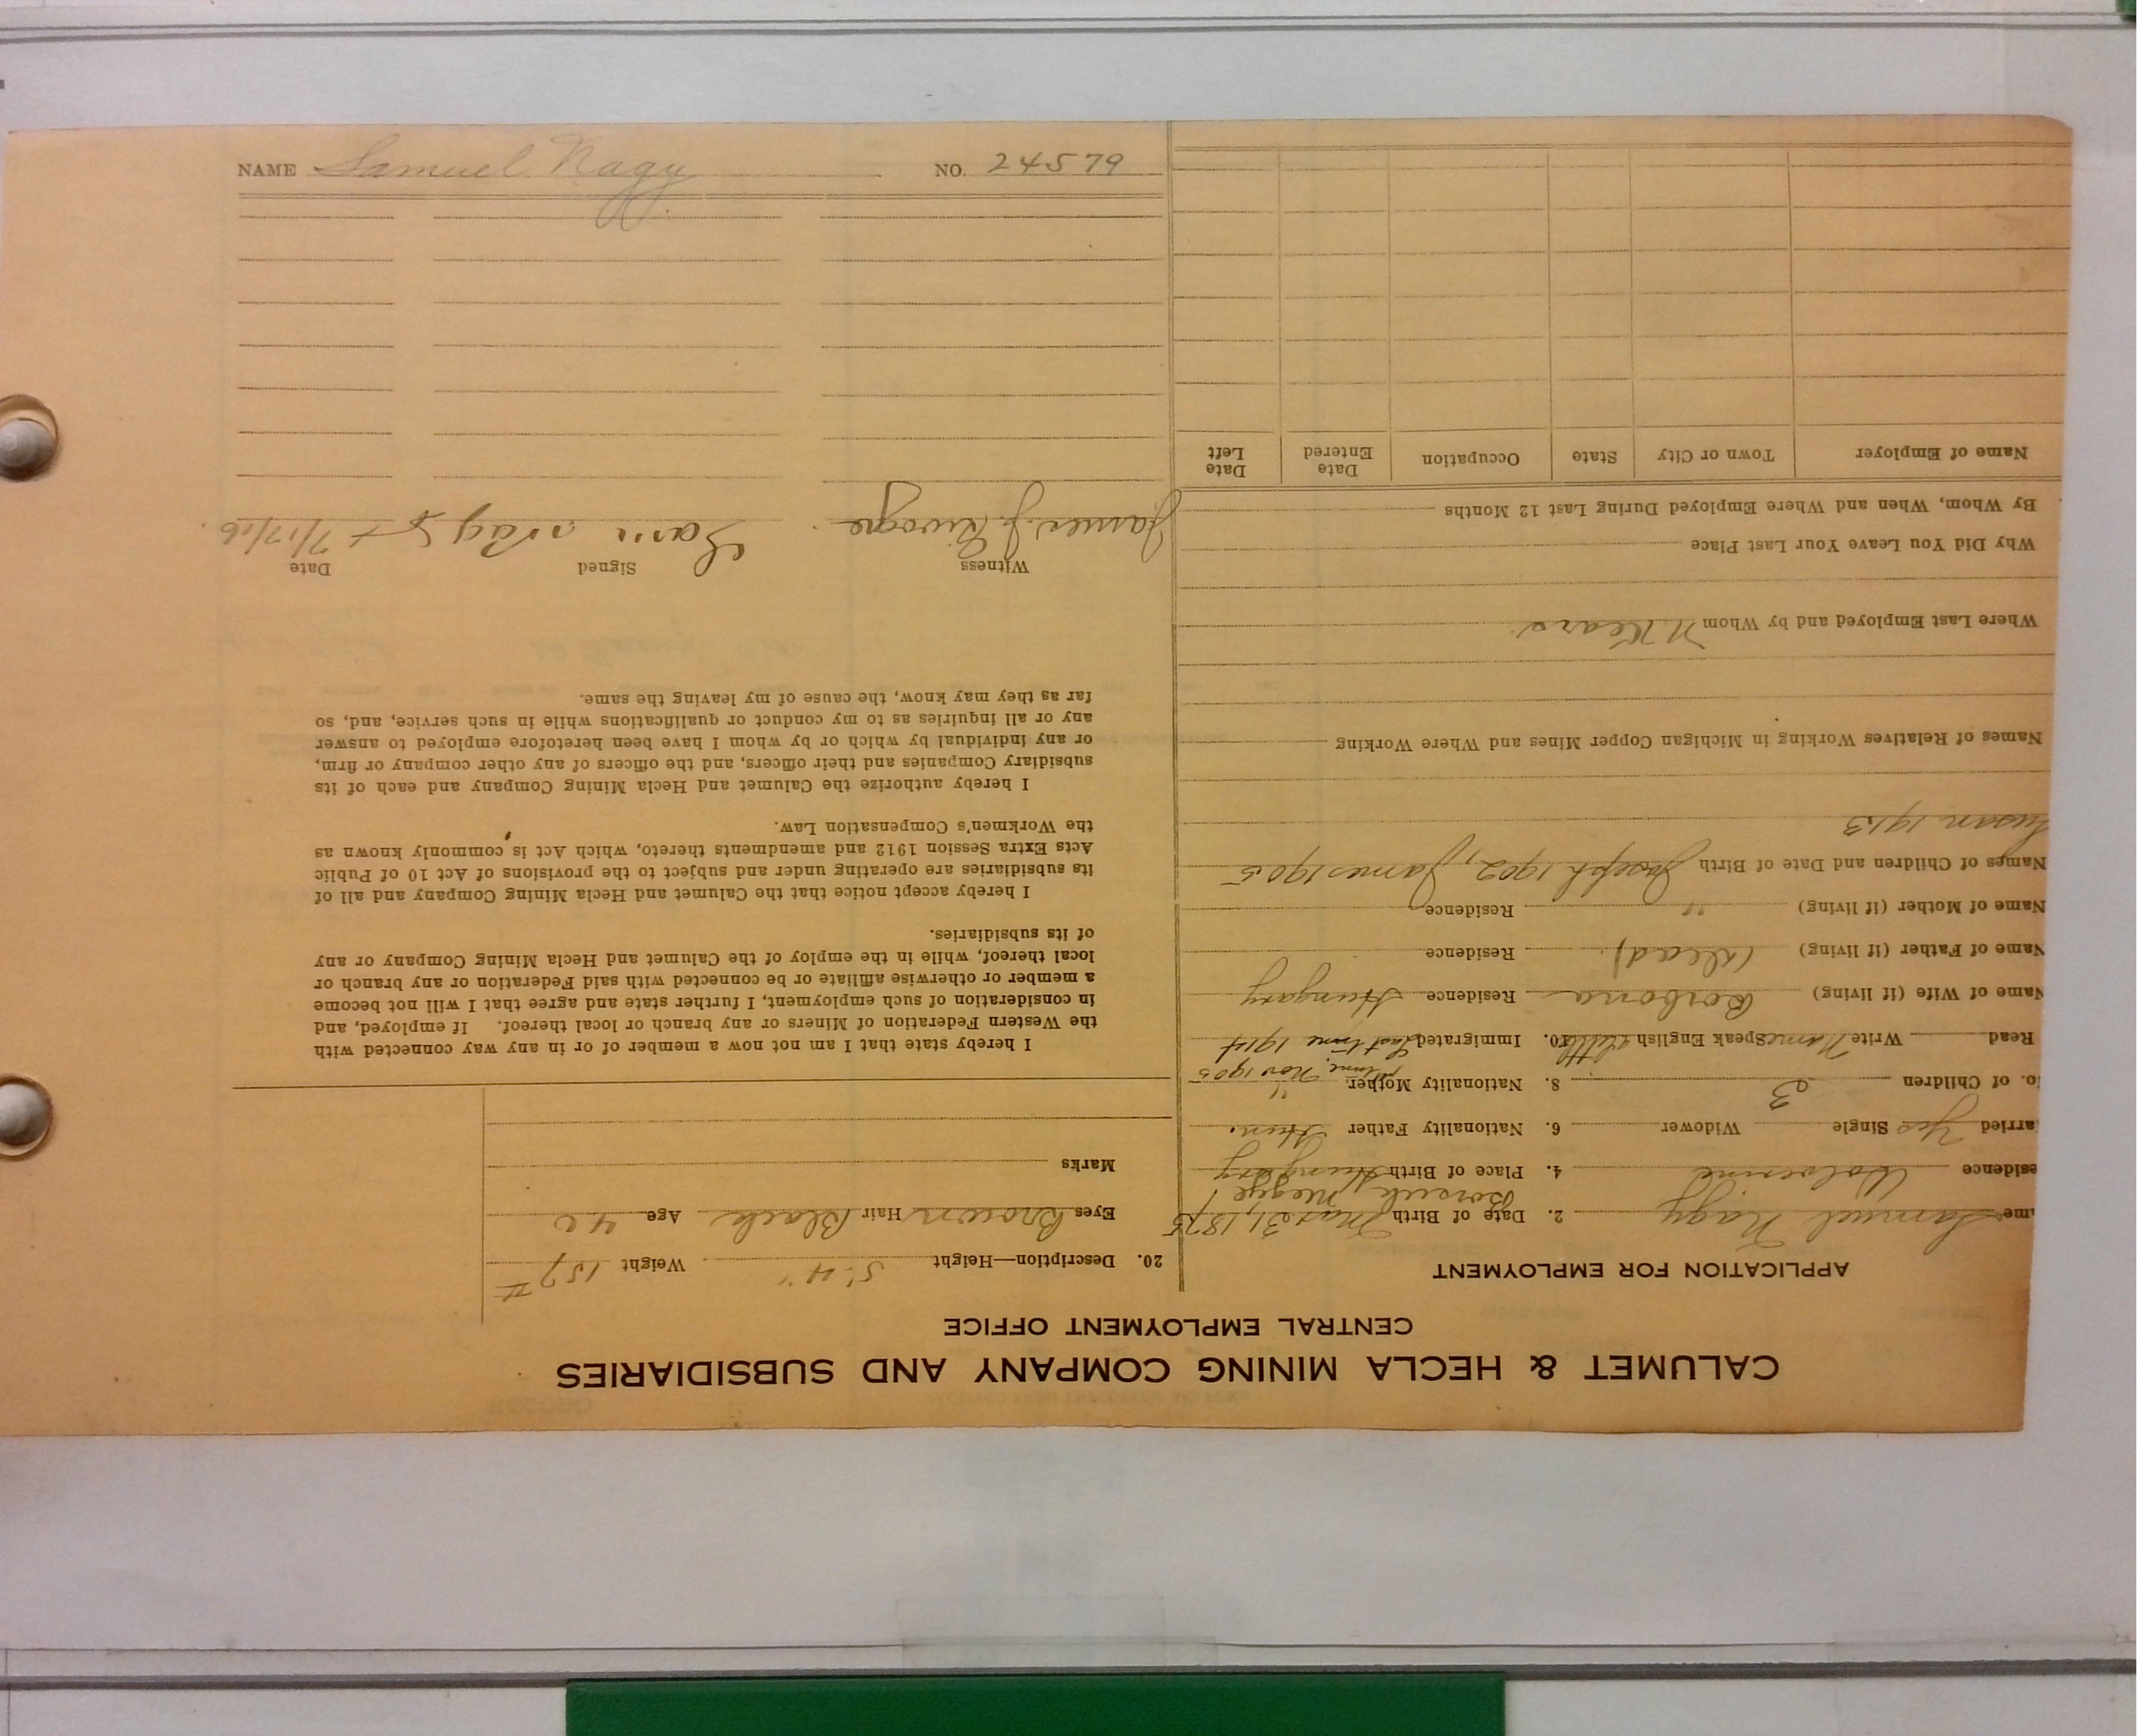 CALUMET & HECLA MINING COMPANY AND SUBSIDIARIES
CENTRAL EMPLOYMENT OFFICE
APPLICATION FOR EMPLOYMENT
me Samuel Nagy 2. Date of Birth Mar 31, 1875
esidence Wolverine 4. Place of Birth Hungary
arried Yes Single Widower 6. Nationality Father Hun.
o. of Children 3 8. Nationality Mother "
Read Write Name Speak English Little 10. Immigrated 1st time, Nov 1905 Last time 1914
Name of Wife (if living) Borbona Residence Hungary
Name of Father (if living) (Dead) Residence
Name of Mother (if living) " Residence
Names of Children and Date of Birth Joseph 1902, James 1905
Susan 1913
Names of Relatives Working in Michigan Copper Mines and Where Working
Where Last Employed and by Whom N. Kears
Why Did You Leave Your Last Place
By Whom, When and Where Employed During Last 12 Months
Name of Employer Town or City State Occupation Date Entered Date Left
20. Description—Height 5'4" Weight 157#
Eyes Brown Hair Black Age 40
Marks
I hereby state that I am not now a member of or in any way connected with
the Western Federation of Miners or any branch or local thereof. If employed, and
in consideration of such employment, I further state and agree that I will not become
a member or otherwise affiliate or be connected with said Federation or any branch or
local thereof, while in the employ of the Calumet and Hecla Mining Company or any
of its subsidiaries.
I hereby accept notice that the Calumet and Hecla Mining Company and all of
its subsidiaries are operating under and subject to the provisions of Act 10 of Public
Acts Extra Session 1912 and amendments thereto, which Act is commonly known as
the Workmen's Compensation Law.
I hereby authorize the Calumet and Hecla Mining Company and each of its
subsidiary Companies and their officers, and the officers of any other company or firm,
or any individual by which or by whom I have been heretofore employed to answer
any or all inquiries as to my conduct or qualifications while in such service, and, so
far as they may know, the cause of my leaving the same.
Witness Signed Date
James J. Sam 7/17/16
NAME Samuel Nagy NO. 24579